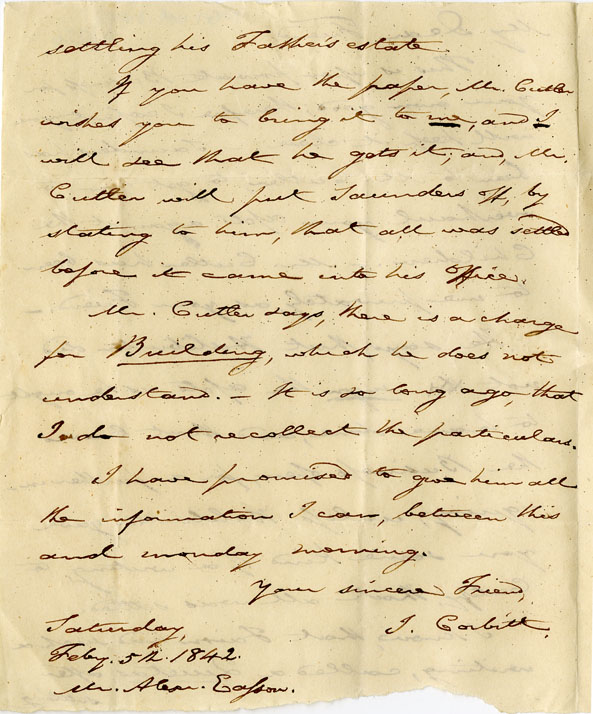 settling his Father's estate
If you have the paper, Mr. Cutler
wishes you to bring it to me, and I
will see that he gets it; and, Mr.
Cutler will put Saunders off, by
stating to him, that all was settled
before it came into his Office.
Mr. Cutler says, there is a charge
for Building, which he does not
understand. – It is so long ago, that
I do not recollect the particulars.
I have promised to give him all
the information I can, between this
and monday morning.
Your sincere Friend,
J. Corbitt.
Saturday,
Feby. 5th. 1842.
Mr. Alexr. Easson.